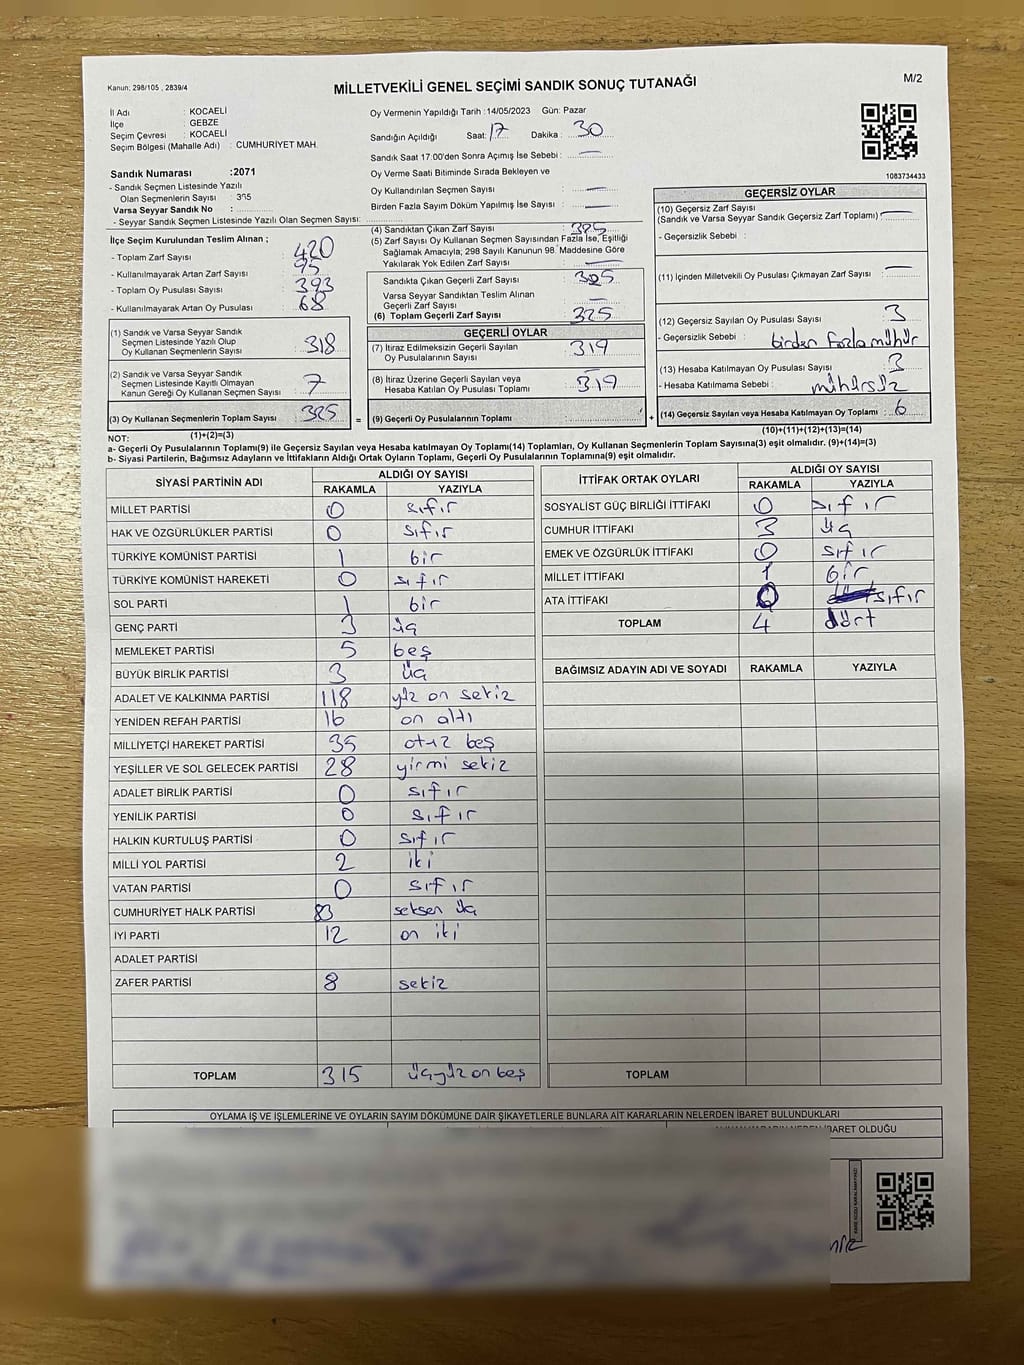 Kanun: 298/105 , 2839/4
MİLLETVEKİLİ GENEL SEÇİMİ SANDIK SONUÇ TUTANAĞI
M/2
İl Adı : KOCAELİ
İlçe : GEBZE
Seçim Çevresi : KOCAELİ
Seçim Bölgesi (Mahalle Adı) : CUMHURIYET MAH.
Oy Vermenin Yapıldığı Tarih :14/05/2023 Gün: Pazar
Sandığın Açıldığı Saat: 17 Dakika : 30
Sandık Saat 17:00'den Sonra Açımış İse Sebebi : —
Oy Verme Saati Bitiminde Sırada Bekleyen ve
Oy Kullandırılan Seçmen Sayısı : —
Birden Fazla Sayım Döküm Yapılmış İse Sayısı : —
1083734433
Sandık Numarası :2071
- Sandık Seçmen Listesinde Yazılı
Olan Seçmenlerin Sayısı :
Varsa Seyyar Sandık No :
- Seyyar Sandık Seçmen Listesinde Yazılı Olan Seçmen Sayısı:
İlçe Seçim Kurulundan Teslim Alınan ;
- Toplam Zarf Sayısı : 420
- Kullanılmayarak Artan Zarf Sayısı : 95
- Toplam Oy Pusulası Sayısı : 393
- Kullanılmayarak Artan Oy Pusulası : 68
(1) Sandık ve Varsa Seyyar Sandık
Seçmen Listesinde Yazılı Olup
Oy Kullanan Seçmenlerin Sayısı : 318
(2) Sandık ve Varsa Seyyar Sandık
Seçmen Listesinde Kayıtlı Olmayan
Kanun Gereği Oy Kullanan Seçmen Sayısı : 7
(3) Oy Kullanan Seçmenlerin Toplam Sayısı : 325
(1)+(2)=(3)
(4) Sandıktan Çıkan Zarf Sayısı : 325
(5) Zarf Sayısı Oy Kullanan Seçmen Sayısından Fazla İse, Eşitliği
Sağlamak Amacıyla; 298 Sayılı Kanunun 98. Maddesine Göre
Yakılarak Yok Edilen Zarf Sayısı : —
Sandıkta Çıkan Geçerli Zarf Sayısı : 325
Varsa Seyyar Sandıktan Teslim Alınan
Geçerli Zarf Sayısı : —
(6) Toplam Geçerli Zarf Sayısı : 325
GEÇERLİ OYLAR
(7) İtiraz Edilmeksizin Geçerli Sayılan
Oy Pusulalarının Sayısı : 319
(8) İtiraz Üzerine Geçerli Sayılan veya
Hesaba Katılan Oy Pusulası Toplamı : 319
= (9) Geçerli Oy Pusulalarının Toplamı :
GEÇERSİZ OYLAR
(10) Geçersiz Zarf Sayısı
(Sandık ve Varsa Seyyar Sandık Geçersiz Zarf Toplamı) : —
- Geçersizlik Sebebi :
(11) İçinden Milletvekili Oy Pusulası Çıkmayan Zarf Sayısı : —
(12) Geçersiz Sayılan Oy Pusulası Sayısı : 3
- Geçersizlik Sebebi : birden fazla mühür
(13) Hesaba Katılmayan Oy Pusulası Sayısı : 3
- Hesaba Katılmama Sebebi : mühürsüz
+ (14) Geçersiz Sayılan veya Hesaba Katılmayan Oy Toplamı : 6
(10)+(11)+(12)+(13)=(14)
NOT:
a- Geçerli Oy Pusulalarının Toplamı(9) ile Geçersiz Sayılan veya Hesaba katılmayan Oy Toplamı(14) Toplamları, Oy Kullanan Seçmenlerin Toplam Sayısına(3) eşit olmalıdır. (9)+(14)=(3)
b- Siyasi Partilerin, Bağımsız Adayların ve İttifakların Aldığı Ortak Oyların Toplamı, Geçerli Oy Pusulalarının Toplamına(9) eşit olmalıdır.
SİYASİ PARTİNİN ADI ALDIĞI OY SAYISI
RAKAMLA YAZIYLA
MİLLET PARTİSİ 0 sıfır
HAK VE ÖZGÜRLÜKLER PARTİSİ 0 sıfır
TÜRKİYE KOMÜNİST PARTİSİ 1 bir
TÜRKİYE KOMÜNİST HAREKETİ 0 sıfır
SOL PARTİ 1 bir
GENÇ PARTİ 3 üç
MEMLEKET PARTİSİ 5 beş
BÜYÜK BİRLİK PARTİSİ 3 üç
ADALET VE KALKINMA PARTİSİ 118 yüz on sekiz
YENİDEN REFAH PARTİSİ 16 on altı
MİLLİYETÇİ HAREKET PARTİSİ 35 otuz beş
YEŞİLLER VE SOL GELECEK PARTİSİ 28 yirmi sekiz
ADALET BİRLİK PARTİSİ 0 sıfır
YENİLİK PARTİSİ 0 sıfır
HALKIN KURTULUŞ PARTİSİ 0 sıfır
MİLLİ YOL PARTİSİ 2 iki
VATAN PARTİSİ 0 sıfır
CUMHURİYET HALK PARTİSİ 83 seksen üç
İYİ PARTİ 12 on iki
ADALET PARTİSİ
ZAFER PARTİSİ 8 sekiz
TOPLAM 315 üçyüz on beş
İTTİFAK ORTAK OYLARI ALDIĞI OY SAYISI
RAKAMLA YAZIYLA
SOSYALIST GÜÇ BİRLİĞİ İTTİFAKI 0 sıfır
CUMHUR İTTİFAKI 3 üç
EMEK VE ÖZGÜRLÜK İTTİFAKI 0 sıfır
MİLLET İTTİFAKI 1 bir
ATA İTTİFAKI 0 sıfır
TOPLAM 4 dört
BAĞIMSIZ ADAYIN ADI VE SOYADI RAKAMLA YAZIYLA
TOPLAM
OYLAMA İŞ VE İŞLEMLERİNE VE OYLARIN SAYIM DÖKÜMÜNE DAİR ŞİKAYETLERLE BUNLARA AİT KARARLARIN NELERDEN İBARET BULUNDUKLARI
İBARET OLDUĞU